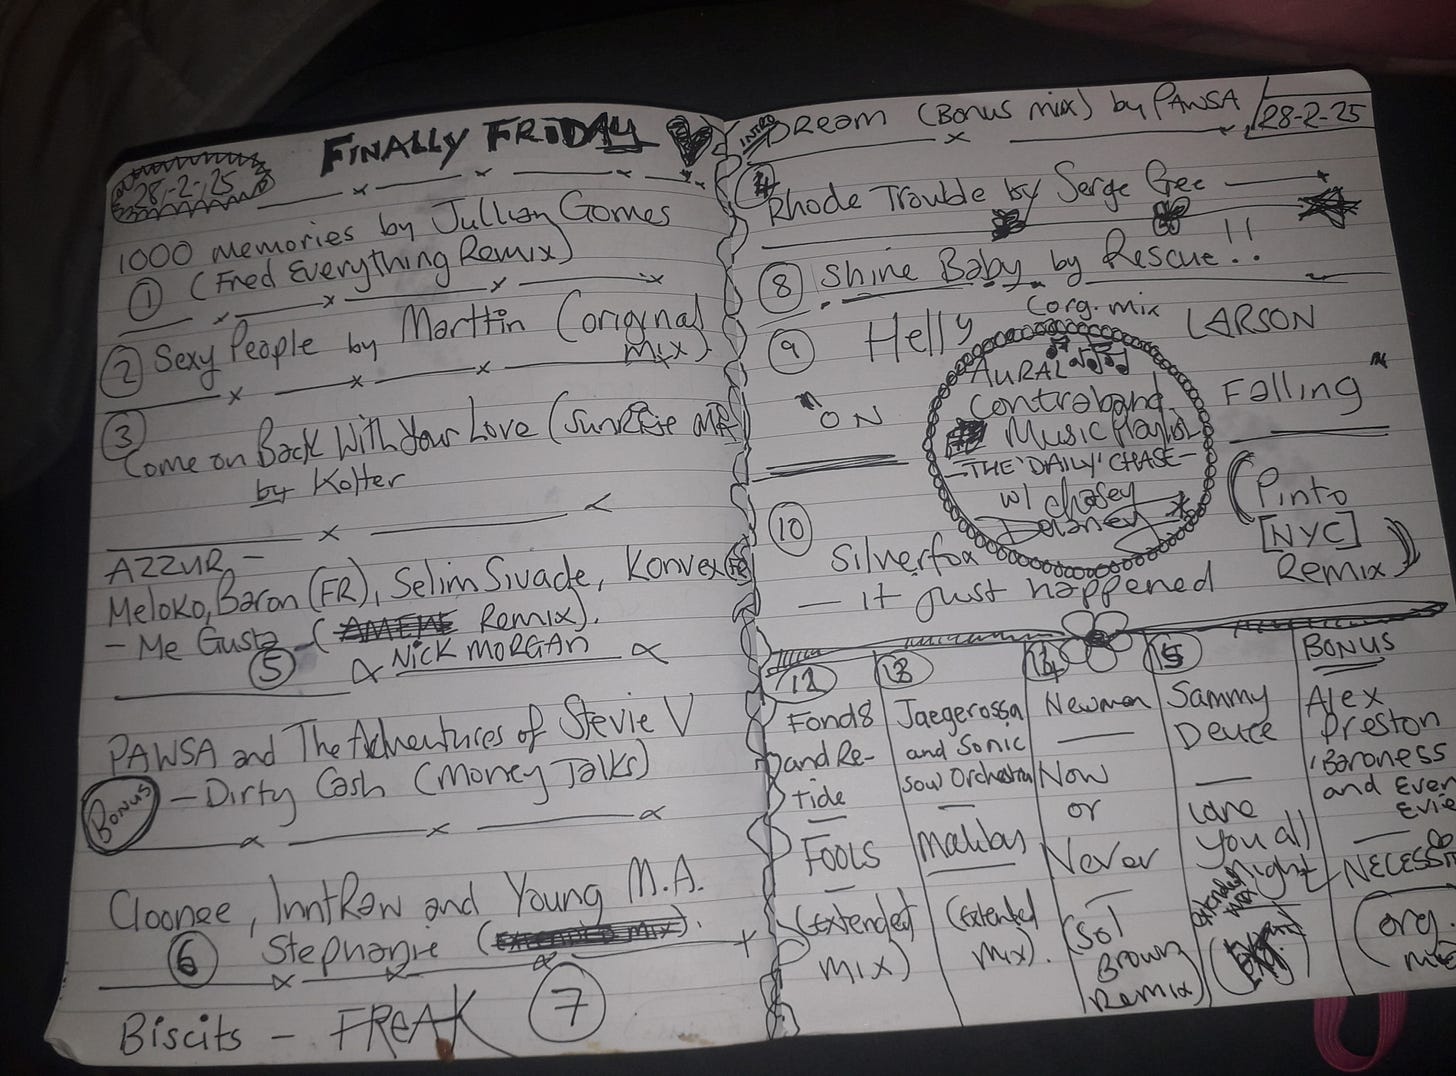 FINALLY FRIDAY
28-2-25
1000 memories by Jullian Gomes
① (Fred Everything Remix)
② Sexy People by Marttin (original
mix)
③
Come on Back With Your Love (Sunrise
by Kolter
AZZUR -
Meloko, Baron (FR), Selim Sivade, Konvex
- Me Gusta - ( Remix).
⑤ NICK MORGAN
PAWSA and The Adventures of Stevie V
Bonus - Dirty Cash (Money Talks)
Cloonee, InntRaw and Young M.A.
⑥ Stephanie (Extended Mix).
Biscits - FREAK ⑦
INTRO Dream (Bonus mix) by PAWSA 28-2-25
④
Rhode Trouble by Serge Gee
⑧ Shine Baby by Rescue!!
(org. mix
⑨ Helly LARSON
"ON Falling"
AURAL
Contraband
Music Playlist
-THE 'DAILY' CHASE-
w/ chasey
Delaney
⑩
Silverfox
— it just happened
(Pinto
[NYC]
Remix)
⑫
Fond8
and Re-
tide
FOOLS
(extended
mix)
⑬
Jaegerossa
and Sonic
Soul Orchestra
Malibu
(Extended
Mix).
⑭
Newman
Now
or
Never
(Sol
Brown
Remix)
⑮
Sammy
Deuce
Love
you all
Night
extended
mix
BONUS
Alex
Preston
Baroness
and Even
Evie
NECESSI
(org